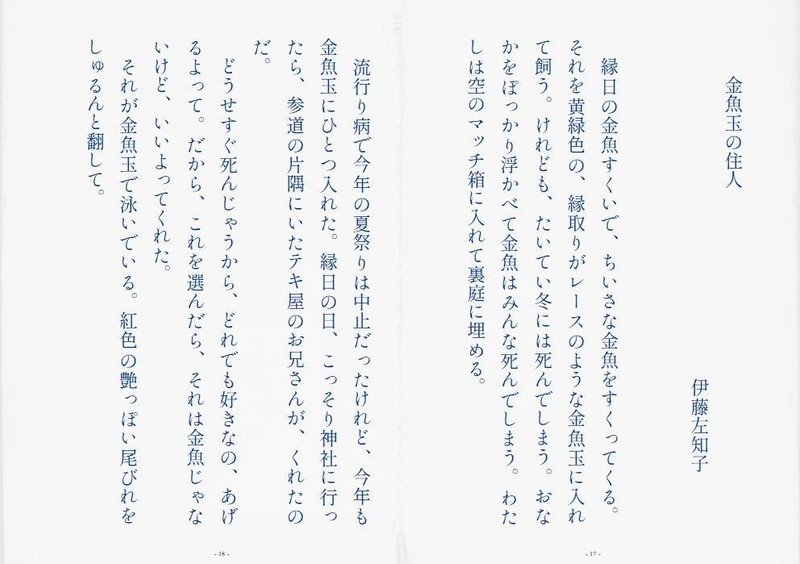 金魚玉の住人
伊藤左知子
縁日の金魚すくいで、ちいさな金魚をすくってくる。
それを黄緑色の、縁取りがレースのような金魚玉に入れ
て飼う。けれども、たいてい冬には死んでしまう。おな
かをぽっかり浮かべて金魚はみんな死んでしまう。わた
しは空のマッチ箱に入れて裏庭に埋める。
- 17 -
流行り病で今年の夏祭りは中止だったけれど、今年も
金魚玉にひとつ入れた。縁日の日、こっそり神社に行っ
たら、参道の片隅にいたテキ屋のお兄さんが、くれたの
だ。
どうせすぐ死んじゃうから、どれでも好きなの、あげ
るよって。だから、これを選んだら、それは金魚じゃな
いけど、いいよってくれた。
それが金魚玉で泳いでいる。紅色の艶っぽい尾びれを
しゅるんと翻して。
- 18 -